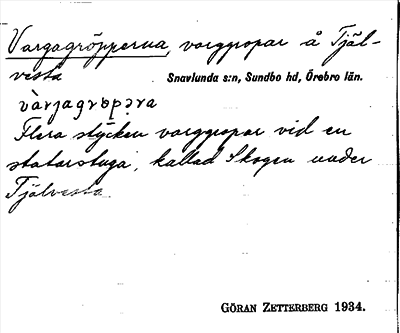 Vargagröpperna, varggropar å Tjäl-
vesta Snavlunda s:n, Sundbo hd, Örebro län.
vàrjagrøpəra
Flera stycken varggropar vid en
statarstuga, kallad Skogen under
Tjälvesta
GÖRAN ZETTERBERG 1934.